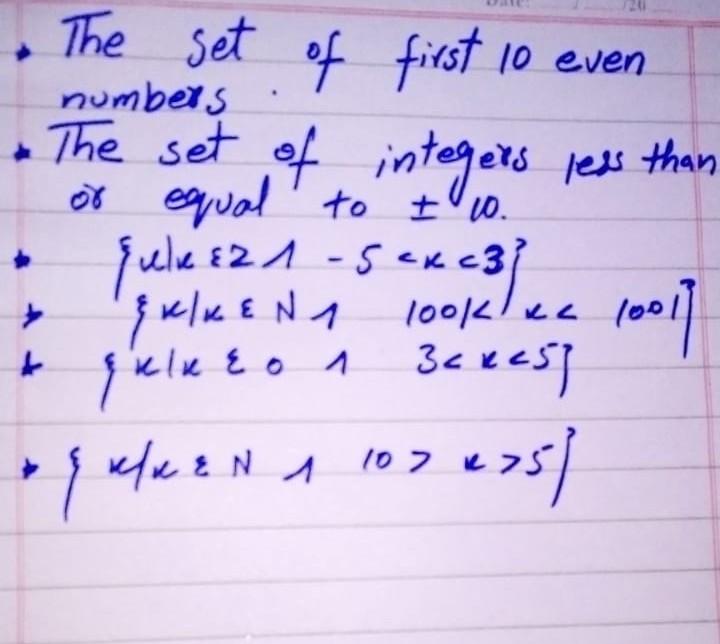 Date: / /20
• The set of first 10 even
numbers.
• The set of integers less than
or equal to ± 10.
• {x|x ε Z ∧ -5 <x <3}
• {x/x ε N ∧ x< 1001}
• {x|x ε O ∧ 3< x<5}
• {x/x ε N ∧ 10 > x >5}